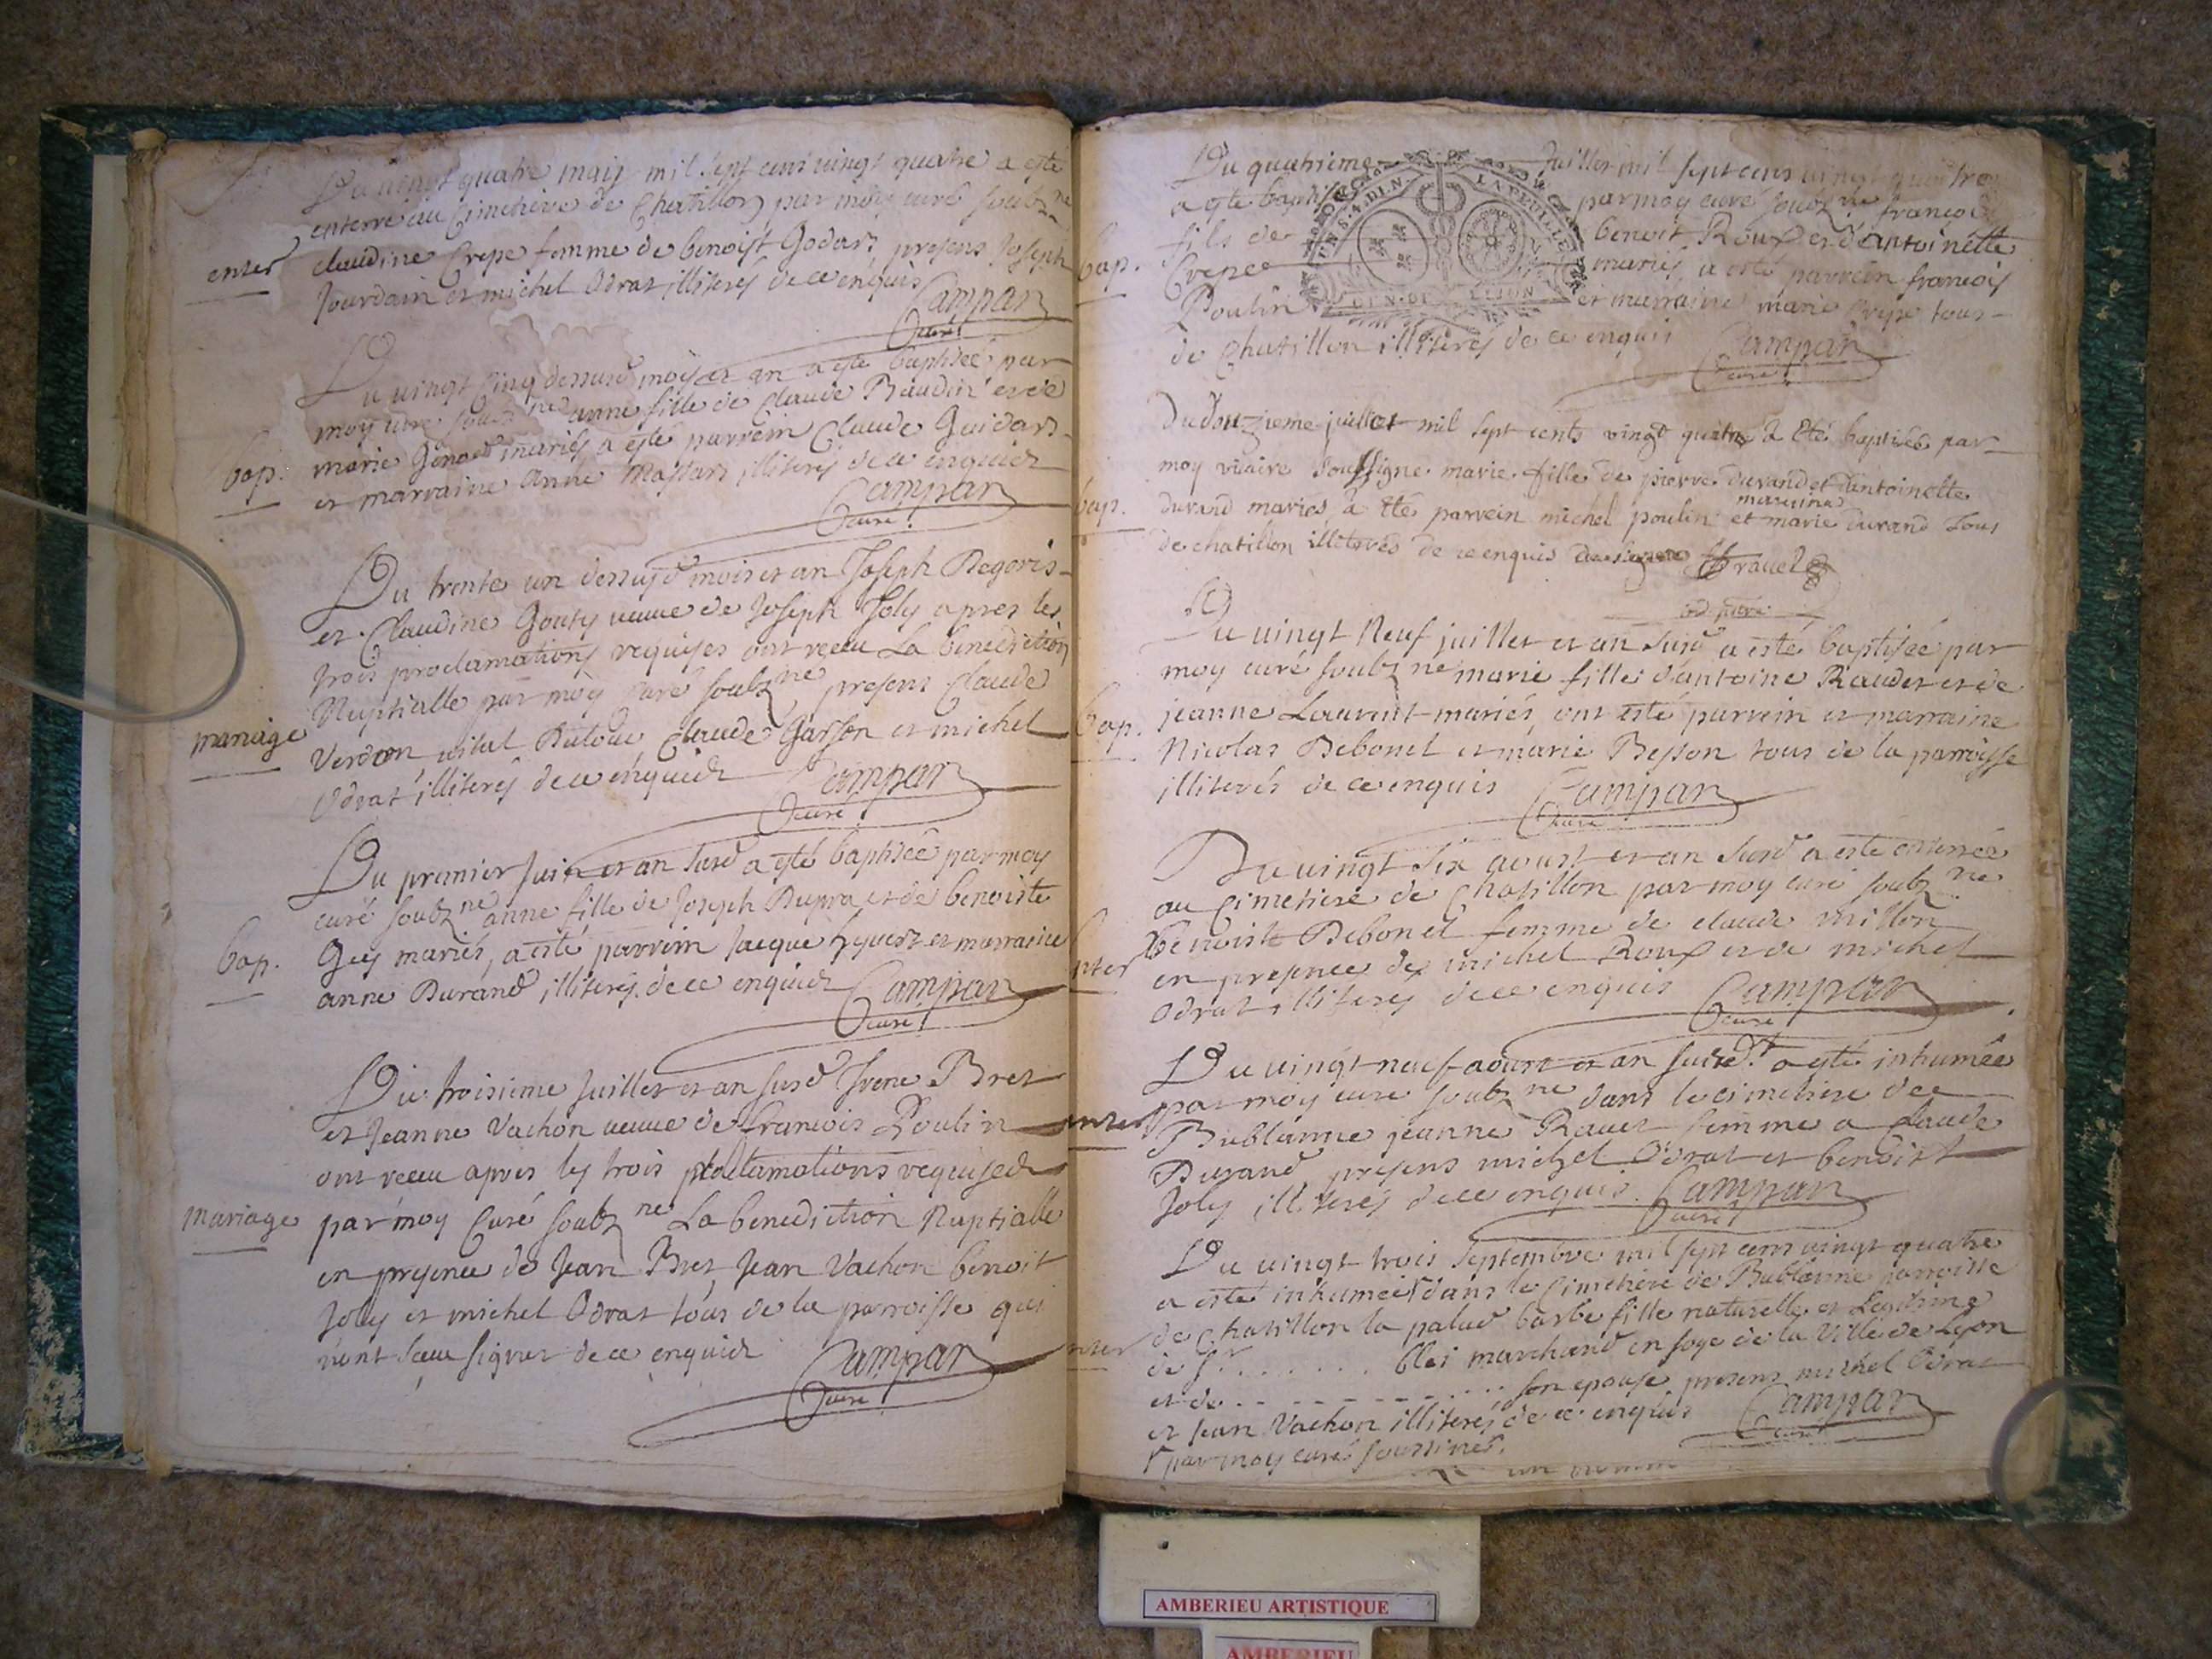 Du vingt quatre may mil sept cens vingt quatre a esté
enterré au Cimetiere de Chatillon par moy curé soubz ne
enter claudine Crepe femme de benoist Godard presens Joseph
Jourdain et michel Odrat illiterés de ce enquis Campan
curé
Du vingt cinq dessusd mois et an a esté baptisée par
moy curé soubz ne anne fille de Claude Baudin et de
bap. marie mariés a esté parrein Claude Guidard
et marraine Anne Massard illiterés de ce enquid
Campan
curé
Du trente un dessusd mois et an Joseph Regoris
et Claudine Gouty veuve de Joseph Joly apres les
trois proclamations requises ont receu La benediction
Nuptialle par moy curé soubz ne presens Claude
mariage Verdon vital Claude Garson et michel
Odrat illiterés de ce enquid Campan
curé
Du premier Juin et an susd a esté baptisée par moy
curé soubz ne anne fille de Joseph Dupra et de benoiste
bap. Guy mariés, a esté parrein Jacque et marraine
anne Durand illiterés de ce enquid Campan
curé
Du troisieme Juillet et an susd Irene Bret
et Jeanne Vachon veuve de francois Poulin
ont receu apres les trois proclamations requised
mariage par moy Curé soubz ne La benediction Nuptialle
en presence de Jean Bret Jean Vachon benoit
Joly et michel Odrat tous de la parroisse qui
n'ont sceu signer de ce enquid Campan
curé
Du quatrieme Juillet mil sept cens vingt quatre
a esté baptisé par moy curé soubz ne francois
bap. fils de benoit Roux et d'antoinette
Crepe mariés, a esté parrein francois
Poulin et marraine marie Crepe tous
GEN. DE LION
de Chatillon illiterés de ce enquis Campan
curé
Du douzieme juillet mil sept cents vingt quatre a eté baptisée par
moy vicaire soussigne marie fille de pierre durand et d'antoinette
marraine
bap. durand mariés a eté parrein michel poulin et marie durand tous
de chatillon illiterés de ce enquis de signer
Du vingt Neuf juillet et an susd a esté baptisée par
moy curé soubz ne marie fille d'antoine Raudet et de
bap. jeanne Laurent mariés ont esté parrein et marraine
Nicolas Debonel et marie Besson tous de la parroisse
illiterés de ce enquis Campan
curé
Du vingt six aoust et an susd a esté enterrée
au Cimetiere de Chatillon par moy curé soubz ne
enter benoiste Debonel femme de claude millon
en presence de michel Roux et de michel
Odrat illiterés de ce enquis Campan
curé
Du vingt neuf aoust et an susd. a esté inhumée
par moy curé soubz ne dans le cimetiere de
enter Bublanne jeanne Ravet femme a Claude
Durand presens michel Odrat et benoist
Joly illiterés de ce enquis. Campan
curé
Du vingt trois Septembre mil sept cens vingt quatre
a esté inhumée dans le Cimetiere de Bublanne parroisse
de Chatillon la palud barbe fille naturelle et Legitime
enter de Sr . . . . . . . Blei marchand en soye de la Ville de Lyon
et de . . . . . . . . . . son epouse presens michel Odrat
et Jean Vachon illiterés de ce enquis Campan
par moy curé soussiné. curé
AMBERIEU ARTISTIQUE
AMBERIEU